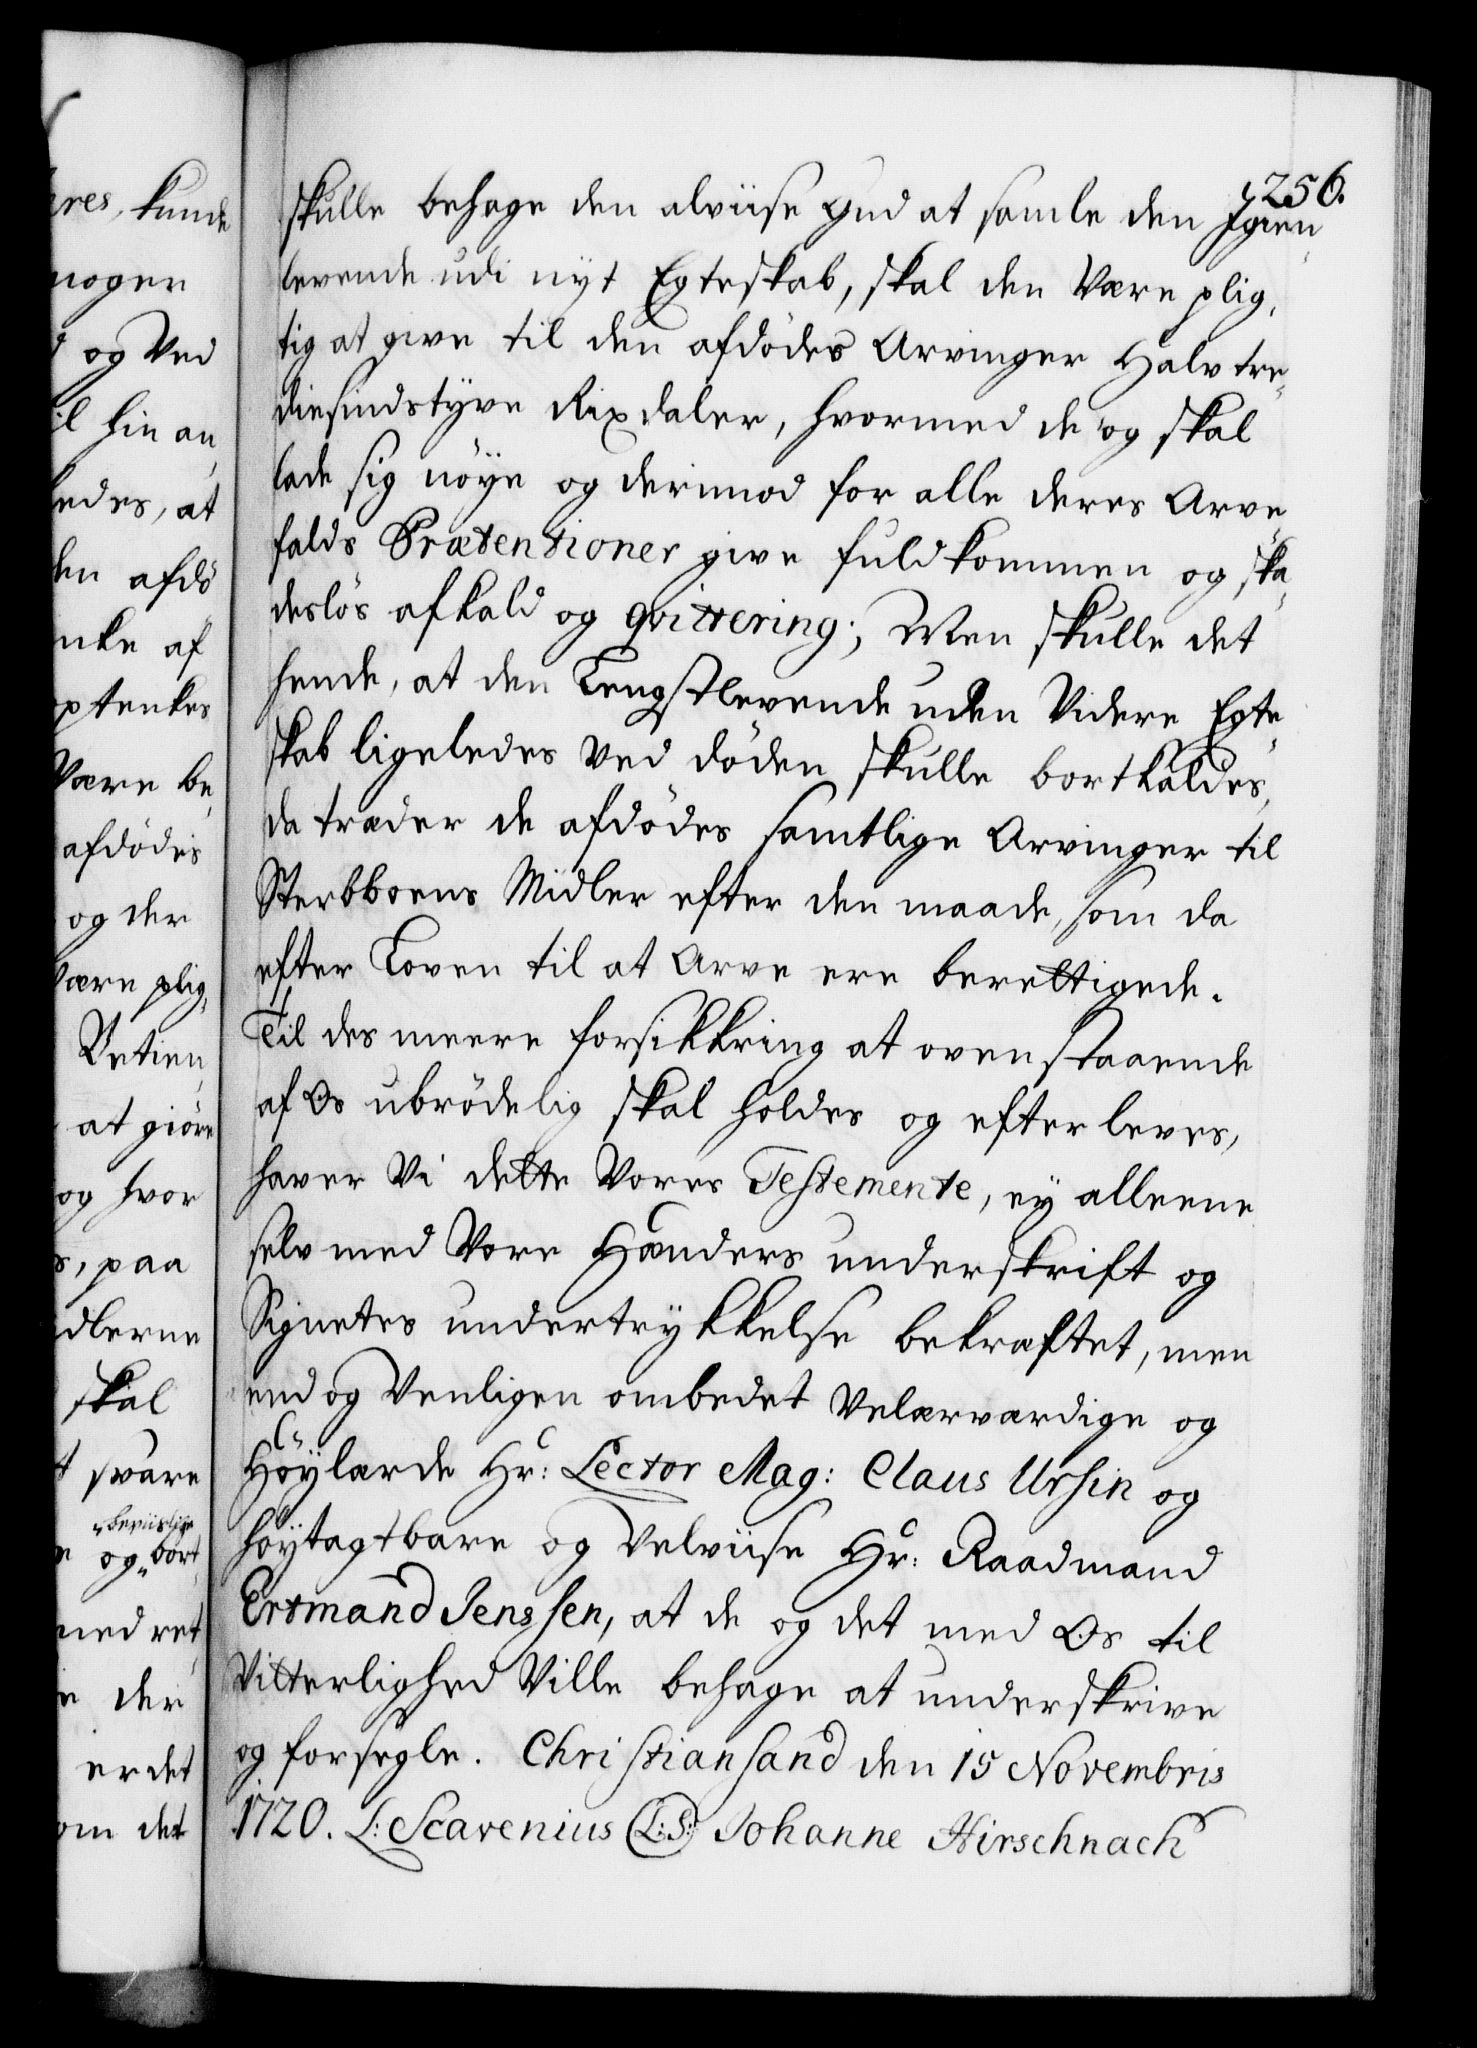 256.
skulle behage den alviise Gud at samle den Igien„
levende udi nyt Egteskab, skal den Være plig„
tig at give til den afdödes Arvinger Halvtre„
diesindstyve Rixdaler, hvormed de og skal
lade sig nöye og derimod for alle deres Arve„
falds Prætentioner give fuldkommen og ska„
deslös afkald og qvittering; Men skulle det
hende, at den Lengstlevende uden Videre Egte„
skab ligeledes Ved döden skulle bortkaldes,
da træder de afdödes samtlige Arvinger til
Sterbboens Midler efter den maade, som da
efter Loven til at Arve ere berettigede.
Til des meere forsikkring at ovenstaaende
af Os ubrödelig skal holdes og efterleves,
haver Vi dette Vores Testemente, ey alleene
selv med Vore Hænders underskrift og
Signetes undertrykkelse bekræftet, men
end og Venligen ombedet Velærværdige og
Höylærde Hr: Lector Mag: Claus Ursin og
höytagtbare og Velviise Hr: Raadmand
Ertmand Jenssen, at de og det med Os til
Vitterlighed Ville behage at underskrive
og forsegle. Christiansand den 15 Novembris
1720. L: Scavenius (L:S:) Johanne Hirschnach